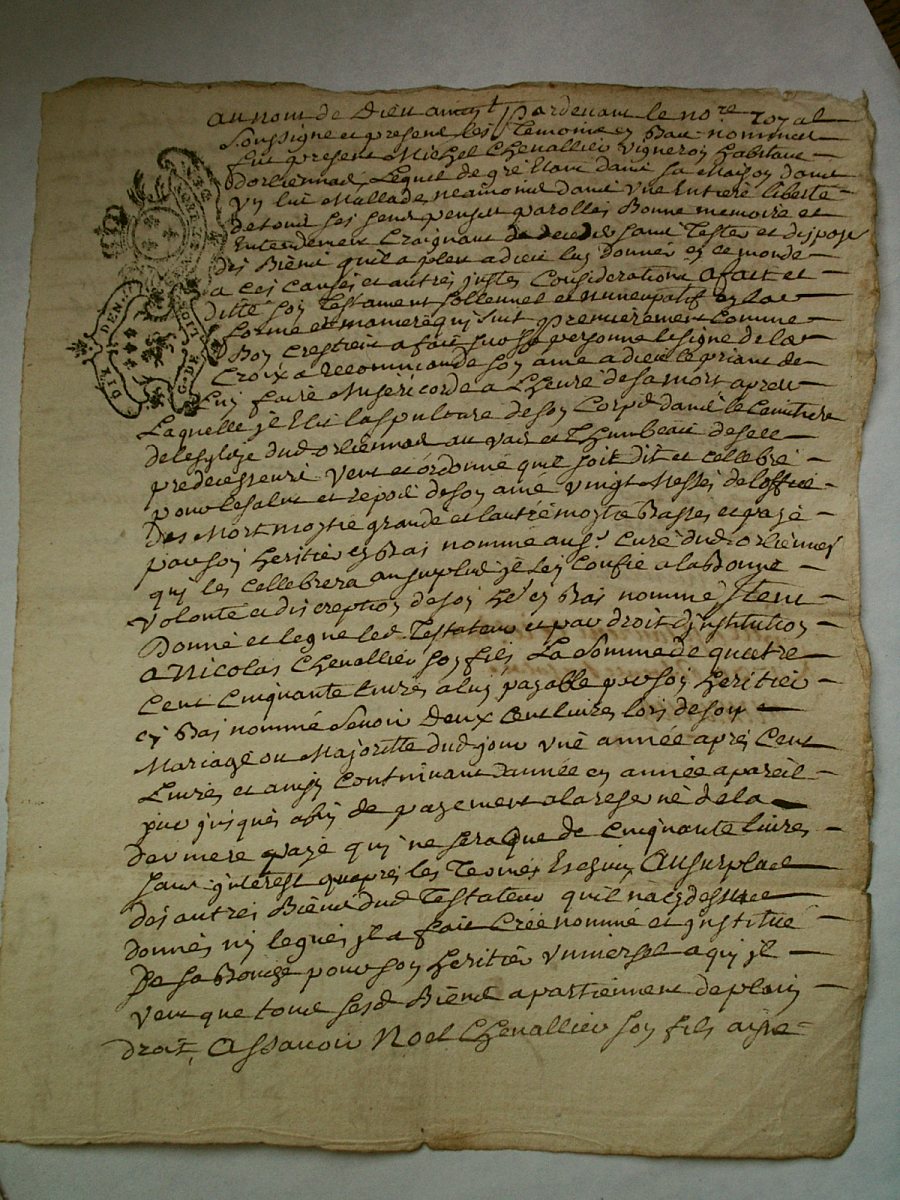 au nom de Dieu amen Pardevant le no.re Royal
Soussigne et presens les Temoins cy Bas nommes
fut present Michel Chevallier vigneron habitant
Dorliennas Lequel de gre Etant dans sa Maison dans
un lit Mallade neamoins dans une Entiere liberte
de tous ses sens pensee parolles Bonne memoire et
Entendement Craignant de deceder sans Tester et disposer
des Biens quil a pleu a dieu luy donner en ce monde
a ces causes et autres justes Considerations a fait et
ditté son Testament sollennel et nuncupatif en la
forme et maniere qui suit premierement comme
Bon Crestien a fait sur sa personne le signe de la
Croix a recommande son ame a dieu le priant de
Luy faire Misericorde a Lheure de sa mort apres
Laquelle jl Elit la sepulture de son Corps dans le Cimitiere
de lesglize dud orliennas au vas et Thumbeau de ses
predecesseurs veut et ordonne quil soit dit et cellebré
pour le salut et repos de son ame vingt Messes de loffice
Des Mort moytié grande et lautre moytié Basses et payé
par son heritier cy Bas nommé au s.r Curé dud orliennas
qui les cellebrera au surplus jl sen confie a la Bonne
volonté et discreption de son he.r cy Bas nommé Item
Donne et legue led Testateur et par droit d'institution
a Nicolas Chevallier son fils La Somme de quatre
Cent Cinquante livres a luy payable par son heritier
cy Bas nommé Scavoir deux Cent livres lors de son
Mariage ou Majoritté dud jour une année apres Cent
Livres et ainsy Continuant dannée en année a pareil
jour jusques a fin de payement a la reserve de la
derniere paye qui ne sera que de Cinquante livres
sans jnterest quapres les Termes Escheus Au surplus
des autres Biens dud Testateur quil na cy dessus
donnés ny legués jl a fait Créé nommé et jnstitué
De sa Bouche pour son heritier universel a qui jl
veut que tous sesd Biens apartiennent de plain
droit, Assavoir Noel Chevallier son fils aisné